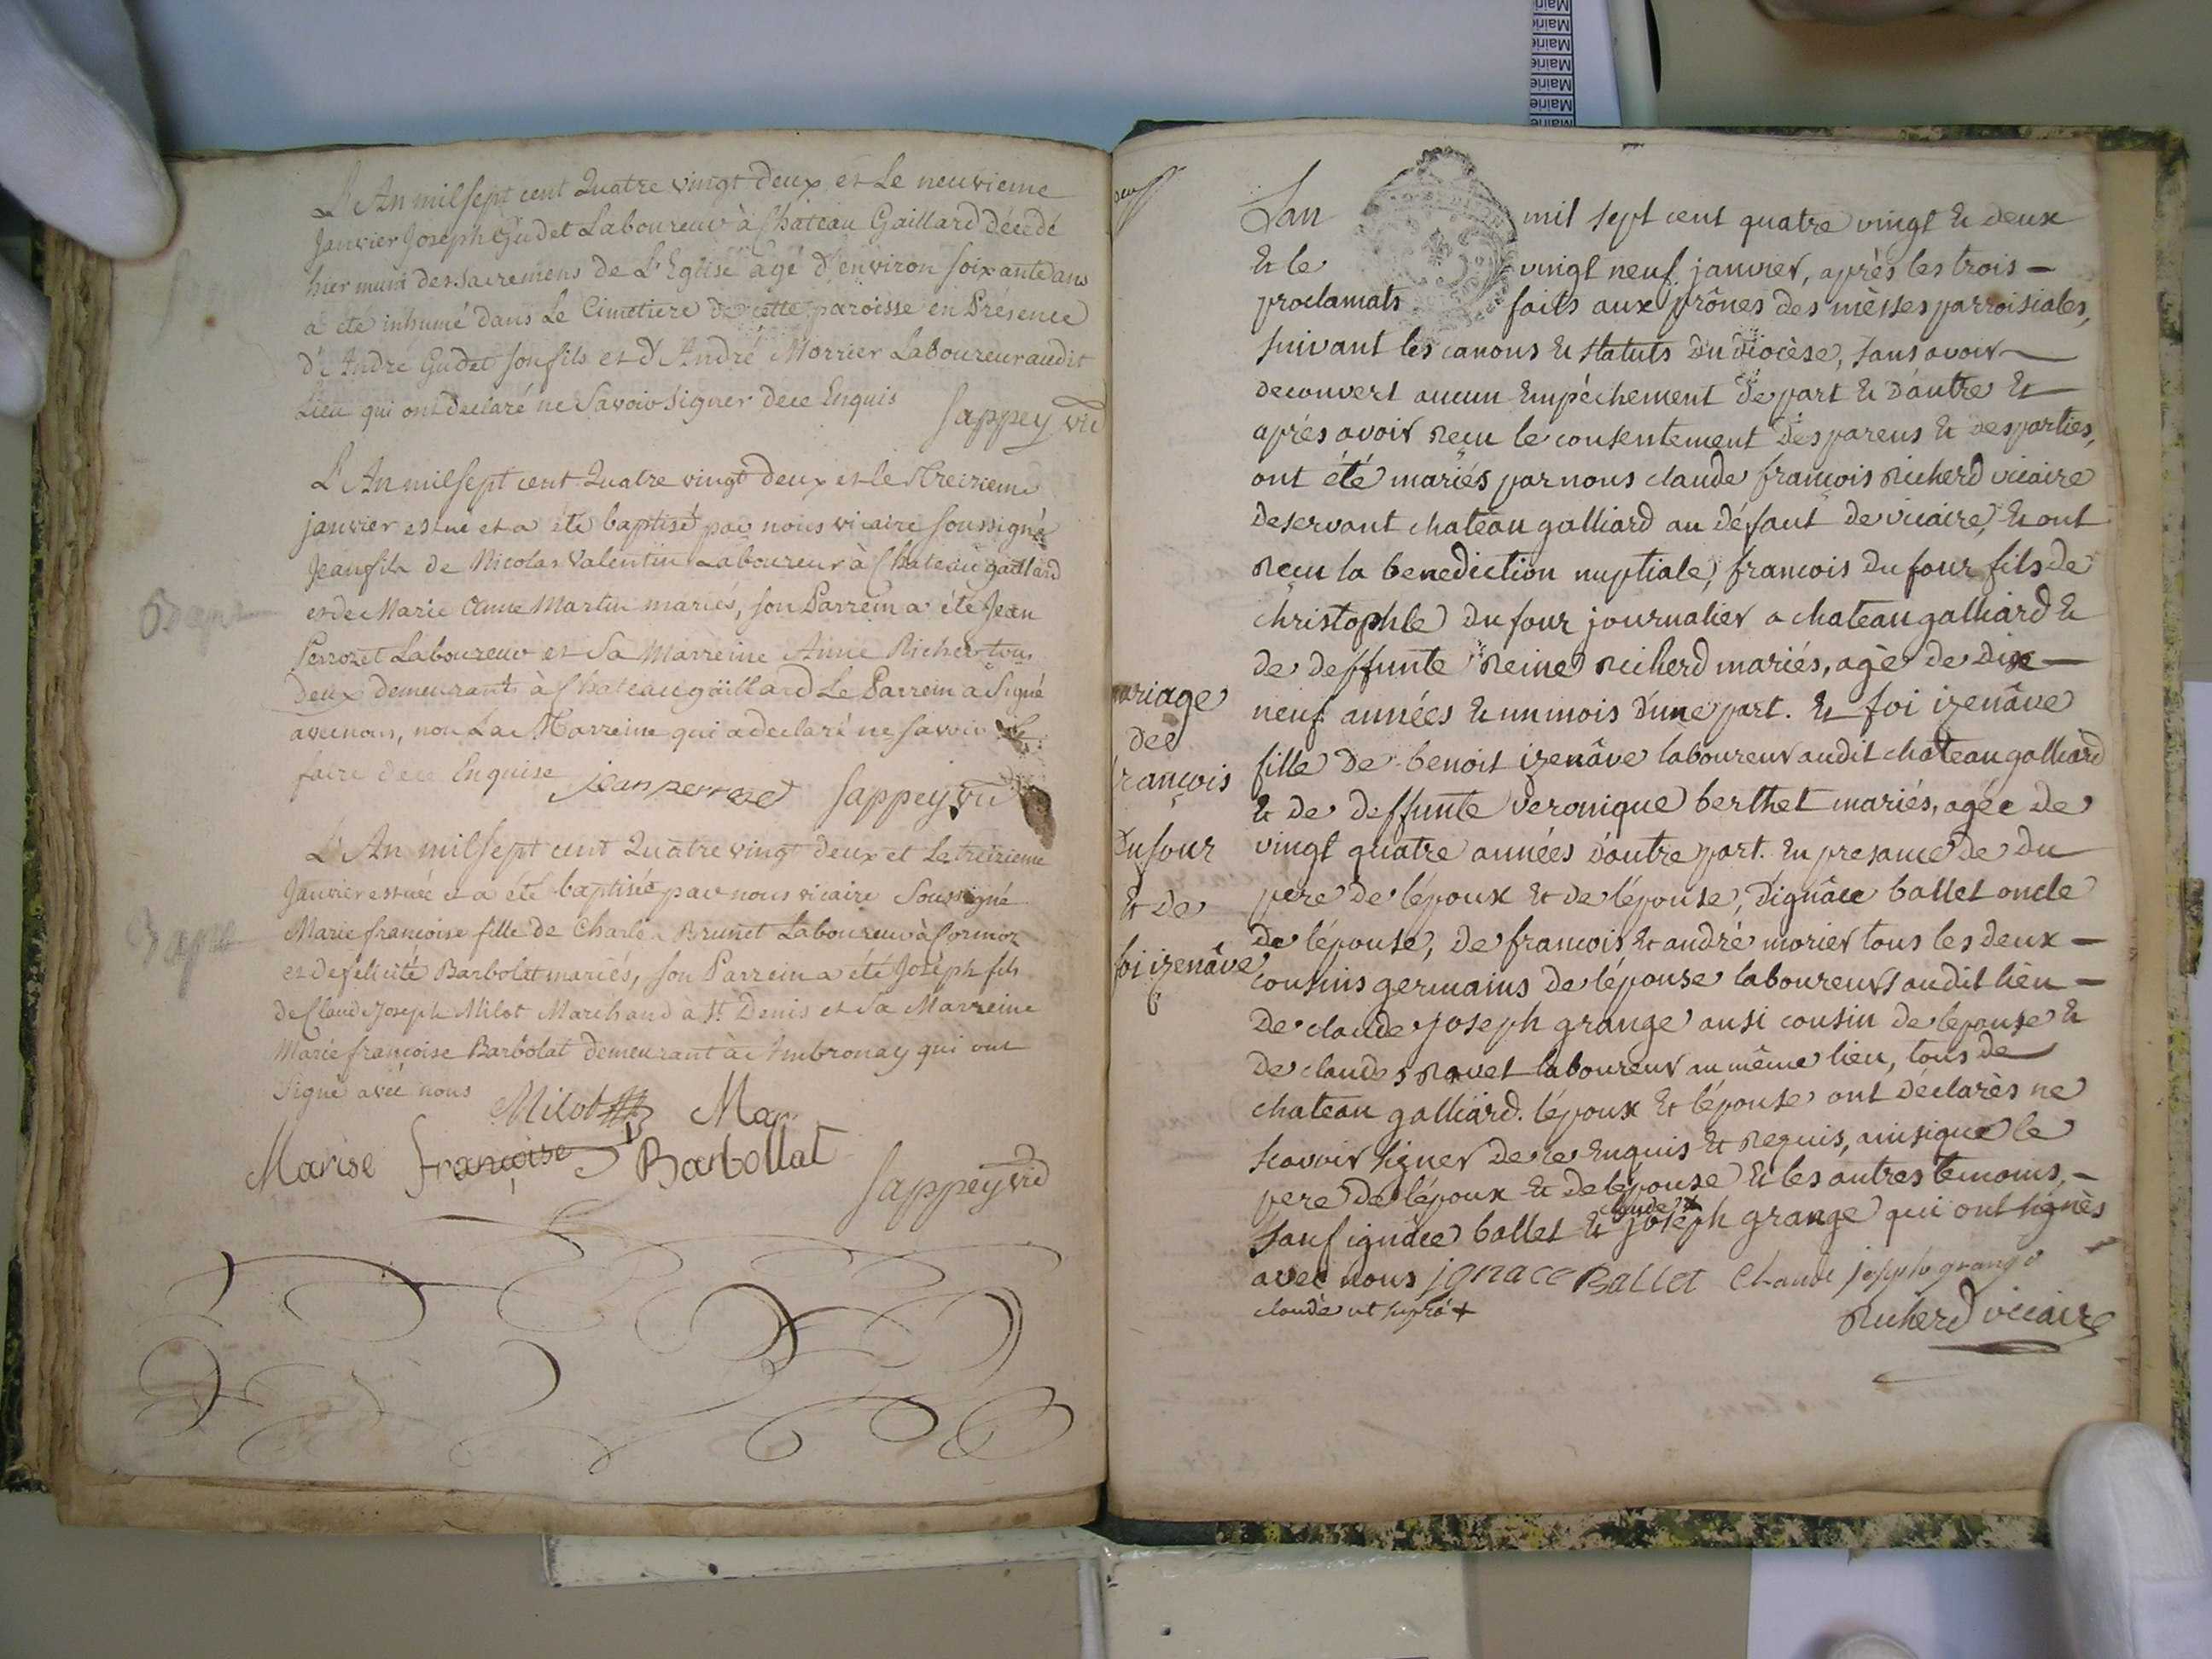 L'An mil sept cent Quatre vingt deux et Le neuvieme
Janvier Joseph Gudet Laboureur à Chateau Gaillard décédé
hier muni des Sacremens de L'Eglise agé d'environ soixante ans
a été inhumé dans Le Cimetiere de cette paroisse en Présence
d'André Gudet son fils et d'André Morrier Laboureur audit
Lieu qui ont declaré ne Savoir signer de ce Enquis
Sappey vic
L'An mil sept cent Quatre vingt deux et le Treizieme
janvier est né et a été baptisé par nous vicaire soussigné
Jean fils de Nicolas Valentin Laboureur à Chateau gaillard
et de Marie Anne Martin mariés, son Parrein a été Jean
Perrozet Laboureur et Sa Marreine Anne Richer tous
Deux demeurants à Chateau gaillard Le Parrein a Signé
avec nous, non La Marreine qui a declaré ne Savoir le
faire de ce Enquise
jean perrozet Sappey vic
L'An mil sept cent Quatre vingt deux et Le treizieme
Janvier est née et a été baptisée par nous vicaire Soussigné
Marie françoise fille de Charle Brunet Laboureur à Cormoz
et de felicité Barbolat mariés, son Parrein a été Joseph fils
de Claude Joseph Milot Marchand à St Denis et Sa Marreine
Marie françoise Barbolat demeurant à Ambronay qui ont
Signé avec nous
Milot Mar
Marise françoise Barbollat
Sappey vic
Lan mil sept cent quatre vingt & deux
& le vingt neuf janvier, après les trois -
proclamats faits aux prônes des mèsses parroisiales,
suivant les canons & statuts du diocèse, sans avoir
decouvert aucun Empéchement de part & d'autre Et
aprés avoir Reçu le consentement des parens & des parties,
ont été mariés par nous claude françois Richerd vicaire
deservant chateau galliard au défaut de vicaire, & ont
Reçu la benediction nuptiale, francois du four fils de
christophle du four journalier a chateau galliard &
de deffunte Reine Richerd mariés, agè de dix -
neuf années & un mois d'une part. Et foi izenâve
fille de benoit izenâve laboureur audit chateau galliard
& de deffunte veronique berthet mariés, agée de
vingt quatre années d'autre part. En presance de du
pere de lépoux Et de lépouse, d'ignâce ballet oncle
de lépouse, de francois, Et andré morier tous les deux -
cousins germains de lépouse laboureurs audit lieu -
De claude joseph grange ausi cousin de lepouse &
de claude Ravet laboureur au même lieu, tous de
chateau galliard. lépoux Et lépouse ont déclarès ne
scavoir signer de ce Enquis Et Requis, ainsique le
pere de lépoux & de lépouse Et les autres temoins, -
claude +
sauf ignâce ballet & joseph grange qui ont signès
avec nous jgnace Ballet Claude joseph grange
claude ut supra +
Richerd vicaire
mariage
de
francois
Du four
Et de
foi izenâve